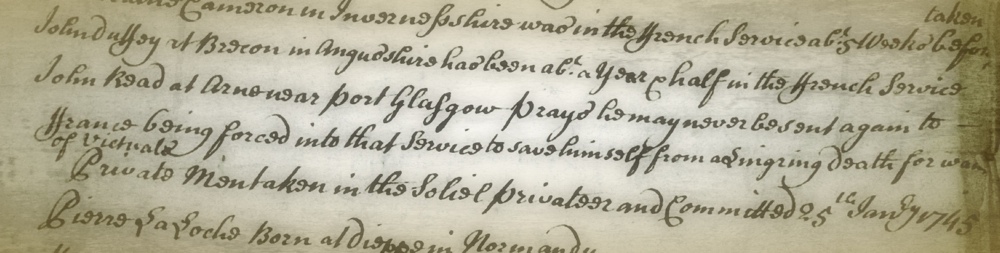 Cameron in Invernessshire was in the French Service abt. 5 Weeks before
taken
John duffey at Brecon in Angusshire has been abt. a Year & half in the French Service
John Read at Arne near Port Glasgow prays he may never be sent again to
France being forced into that Service to save himself from a Lingring death for want
of Victuals
Private Men taken in the Soliel privateer and Committed 25th Janry 1745
Pierre La Loche Born at Dieppe in Normandy